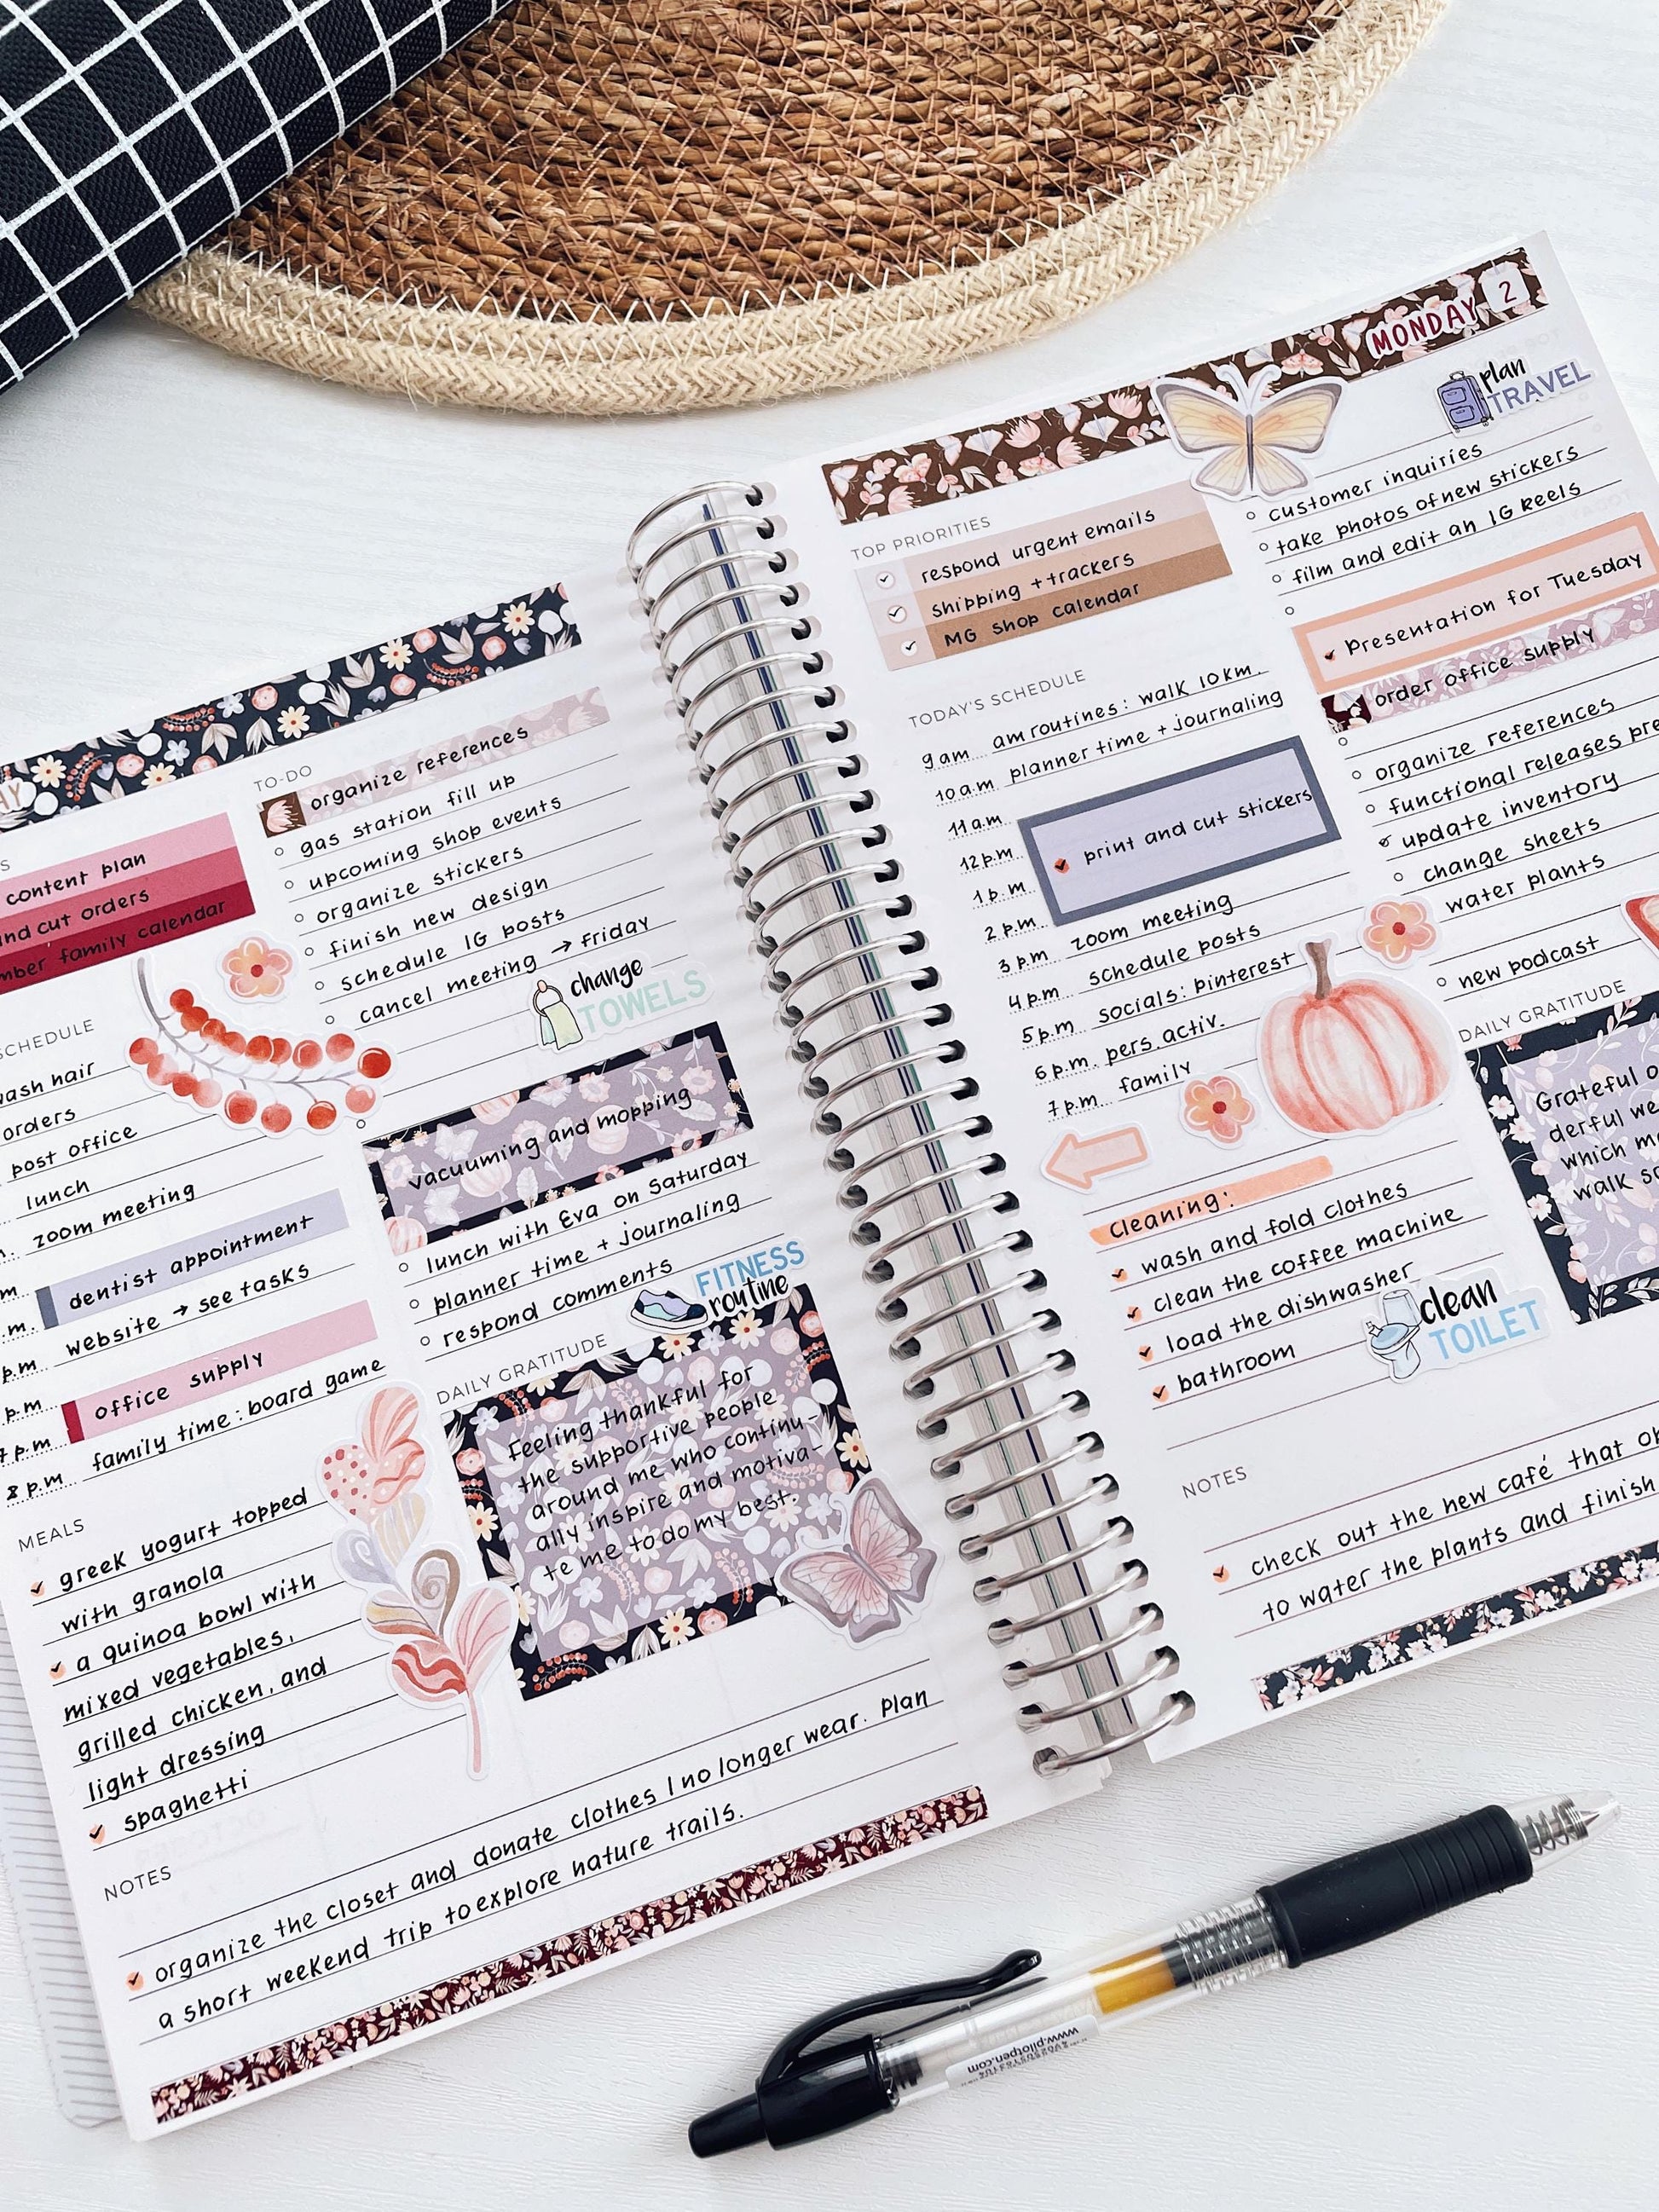 AY
TO-DO
organize references
gas station fill up
upcoming shop events
organize stickers
finish new design
schedule IG posts
cancel meeting → Friday
change
TOWELS
vacuuming and mopping
lunch with Eva on Saturday
planner time + journaling
respond comments
FITNESS
routine
content plan
and cut orders
mber family calendar
SCHEDULE
wash hair
orders
post office
lunch
zoom meeting
dentist appointment
website → see tasks
p.m
office supply
p.m
7 p.m
family time: board game
8 p.m.
DAILY GRATITUDE
Feeling thankful for
the supportive people
around me who continu-
ally inspire and motiva-
te me to do my best.
MEALS
greek yogurt topped
with granola
a quinoa bowl with
mixed vegetables,
grilled chicken, and
light dressing
spaghetti
NOTES
organize the closet and donate clothes I no longer wear. Plan
a short weekend trip to explore nature trails.
MONDAY 2
plan
TRAVEL
TOP PRIORITIES
respond urgent emails
shipping + trackers
MG Shop calendar
customer inquiries
take photos of new stickers
film and edit an IG Reels
Presentation for Tuesday
order office supply
organize references
functional releases pre
update inventory
change sheets
water plants
new podcast
TODAY'S SCHEDULE
9 a.m. am routines: walk 10 km.
10 a.m. planner time + journaling
11 a.m.
12 p.m. print and cut stickers
1 p.m.
2 p.m. zoom meeting
3 p.m. schedule posts
4 p.m. socials: pinterest
5 p.m. pers. activ.
6 p.m. family
7 p.m.
DAILY GRATITUDE
Grateful o
derful we
which m
walk so
Cleaning:
wash and fold clothes
clean the coffee machine
load the dishwasher
bathroom
clean
TOILET
NOTES
check out the new café that op
to water the plants and finish
www.pilotpen.com